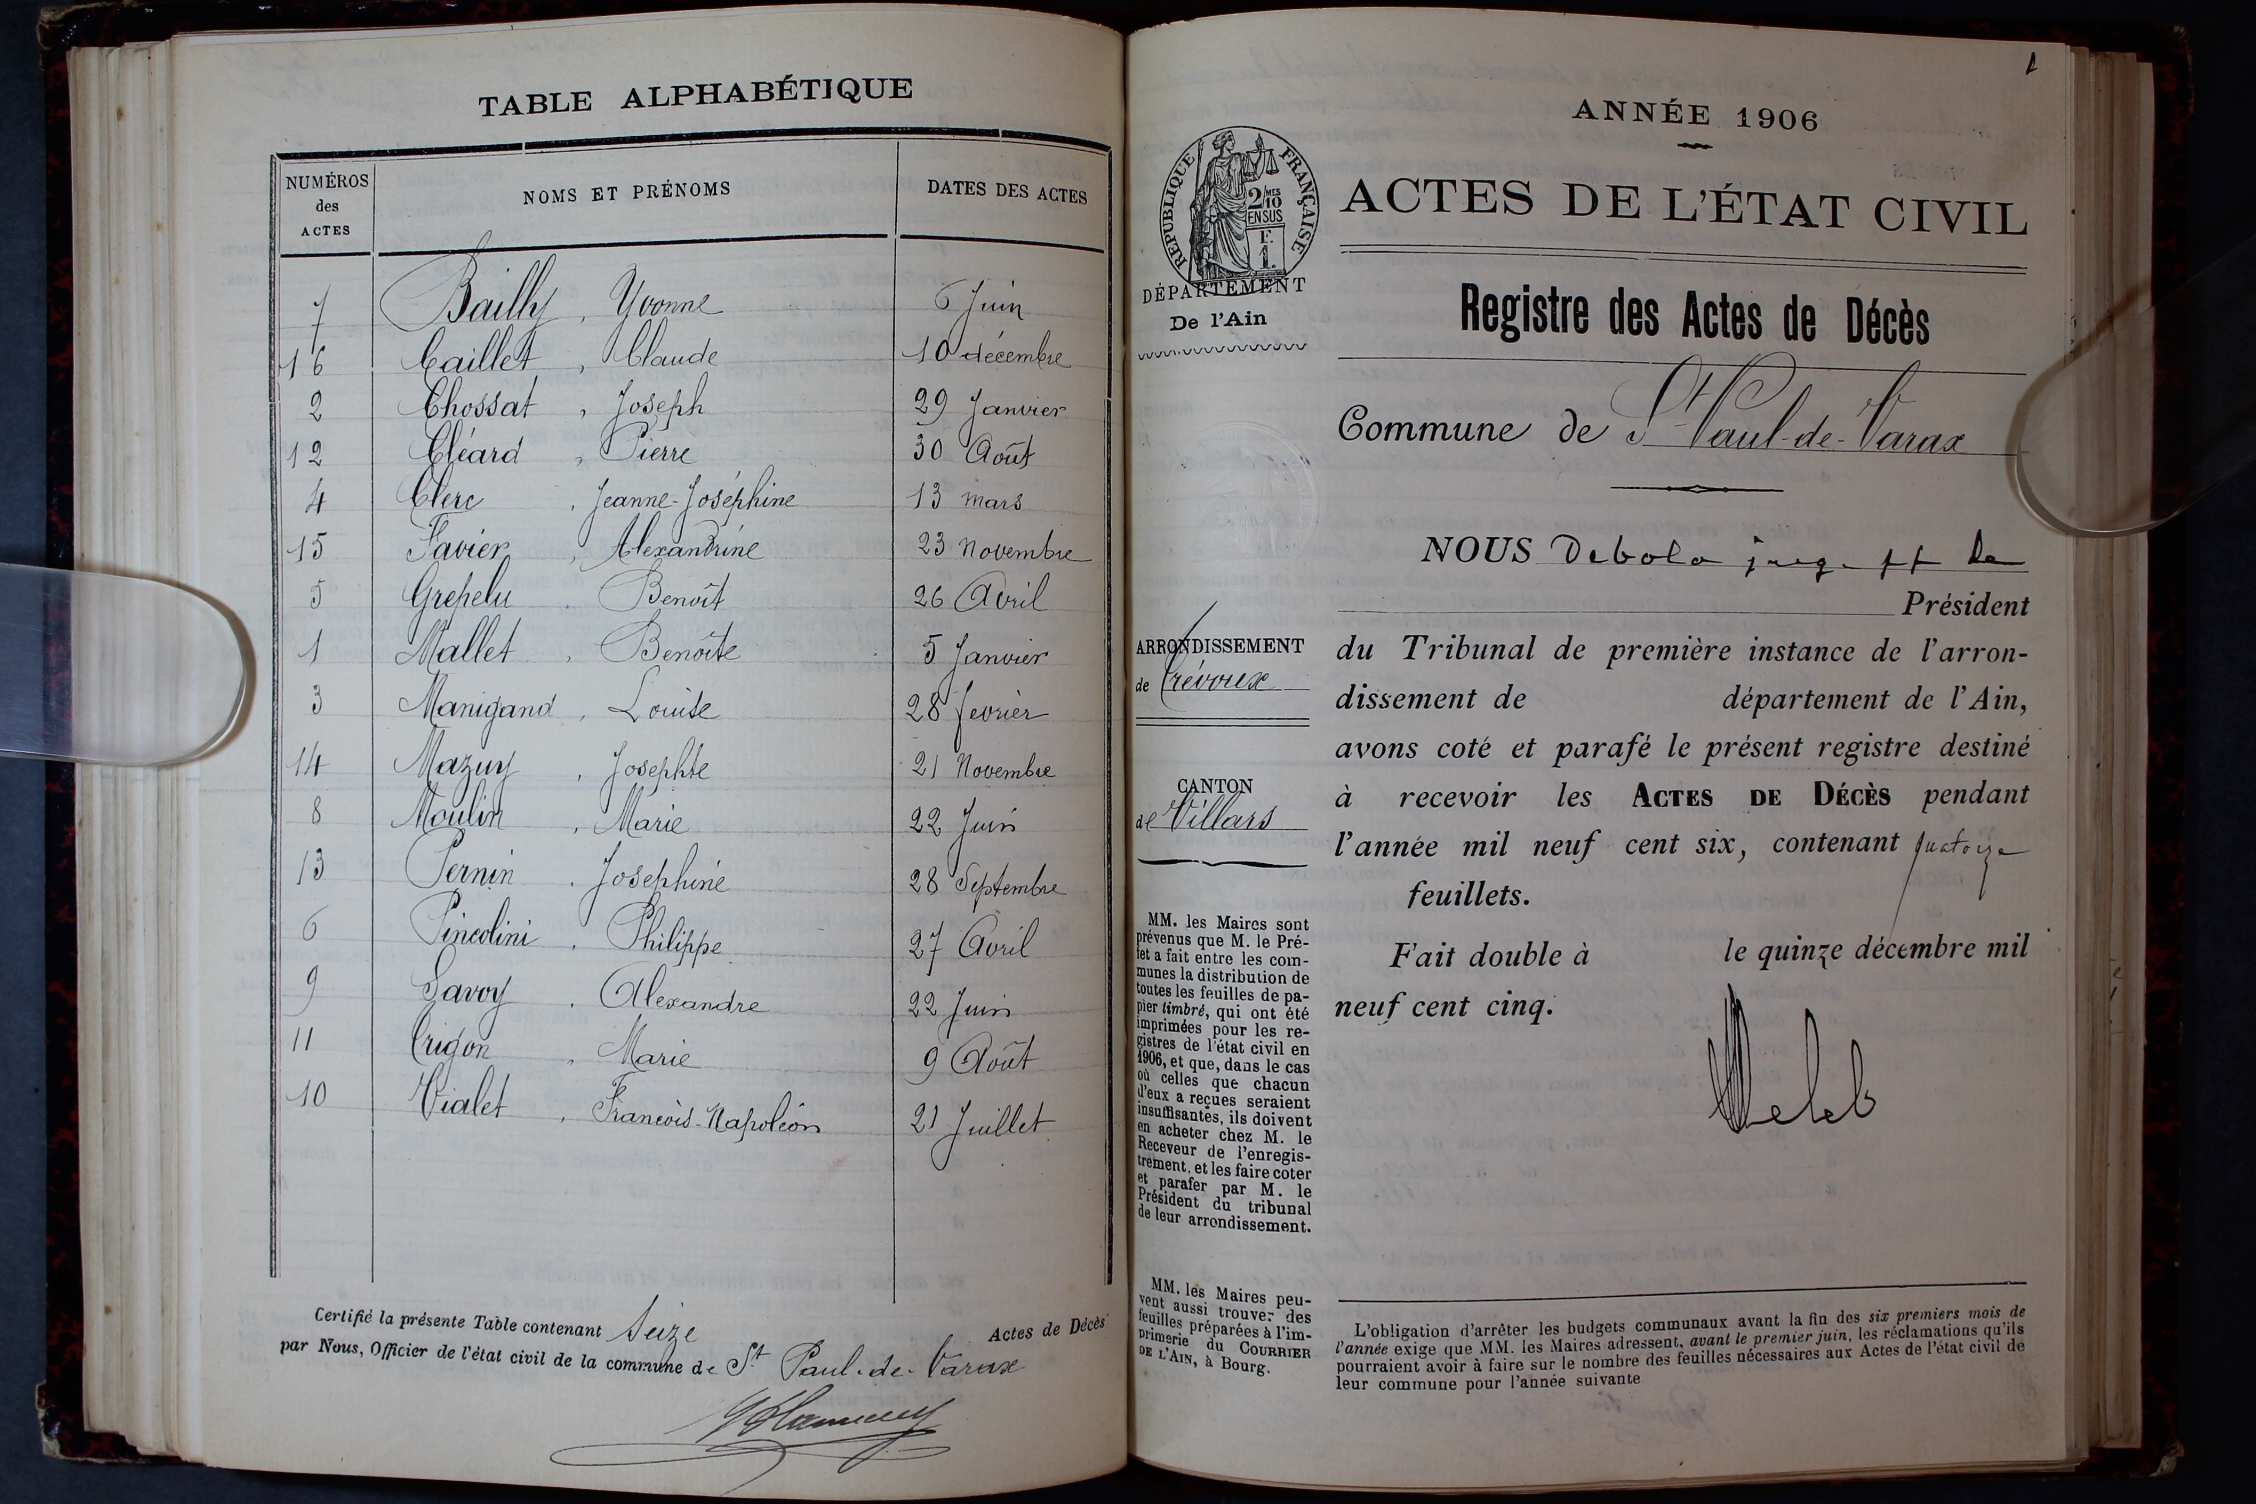 TABLE ALPHABÉTIQUE
NUMÉROS des ACTES NOMS ET PRÉNOMS DATES DES ACTES
7 Bailly, Yvonne 6 Juin
16 Caillet, Claude 10 décembre
2 Chossat, Joseph 29 Janvier
12 Cléard, Pierre 30 Août
4 Clerc, Jeanne-Joséphine 13 mars
15 Favier, Alexandrine 23 Novembre
5 Grepelu, Benoît 26 Avril
1 Mallet, Benoîte 5 Janvier
3 Manigand, Louise 28 février
14 Mazuy, Josephte 21 Novembre
8 Moulin, Marie 22 Juin
13 Pernin, Joséphine 28 Septembre
6 Pincolini, Philippe 27 Avril
9 Savoy, Alexandre 22 Juin
11 Trigon, Marie 9 Août
10 Vialet, François-Napoléon 21 Juillet
Certifié la présente Table contenant Seize Actes de Décès
par Nous, Officier de l'état civil de la commune de St Paul-de-Varax
1
ANNÉE 1906
RÉPUBLIQUE FRANÇAISE
2/10 MES
EN SUS
F.
1.
ACTES DE L'ÉTAT CIVIL
DÉPARTEMENT
De l'Ain
Registre des Actes de Décès
Commune de St Paul-de-Varax
NOUS
Président
ARRONDISSEMENT
de Trévoux
du Tribunal de première instance de l'arron-
dissement de département de l'Ain,
avons coté et parafé le présent registre destiné
CANTON
de Villars
à recevoir les ACTES DE DÉCÈS pendant
l'année mil neuf cent six, contenant quatorze
feuillets.
Fait double à le quinze décembre mil
neuf cent cinq.
MM. les Maires sont
prévenus que M. le Pré-
fet a fait entre les com-
munes la distribution de
toutes les feuilles de pa-
pier timbré, qui ont été
imprimées pour les re-
gistres de l'état civil en
1906, et que, dans le cas
où celles que chacun
d'eux a reçues seraient
insuffisantes, ils doivent
en acheter chez M. le
Receveur de l'enregis-
trement, et les faire coter
et parafer par M. le
Président du tribunal
de leur arrondissement.
MM. les Maires peu-
vent aussi trouver des
feuilles préparées à l'im-
primerie du COURRIER
DE L'AIN, à Bourg.
L'obligation d'arrêter les budgets communaux avant la fin des six premiers mois de
l'année exige que MM. les Maires adressent, avant le premier juin, les réclamations qu'ils
pourraient avoir à faire sur le nombre des feuilles nécessaires aux Actes de l'état civil de
leur commune pour l'année suivante